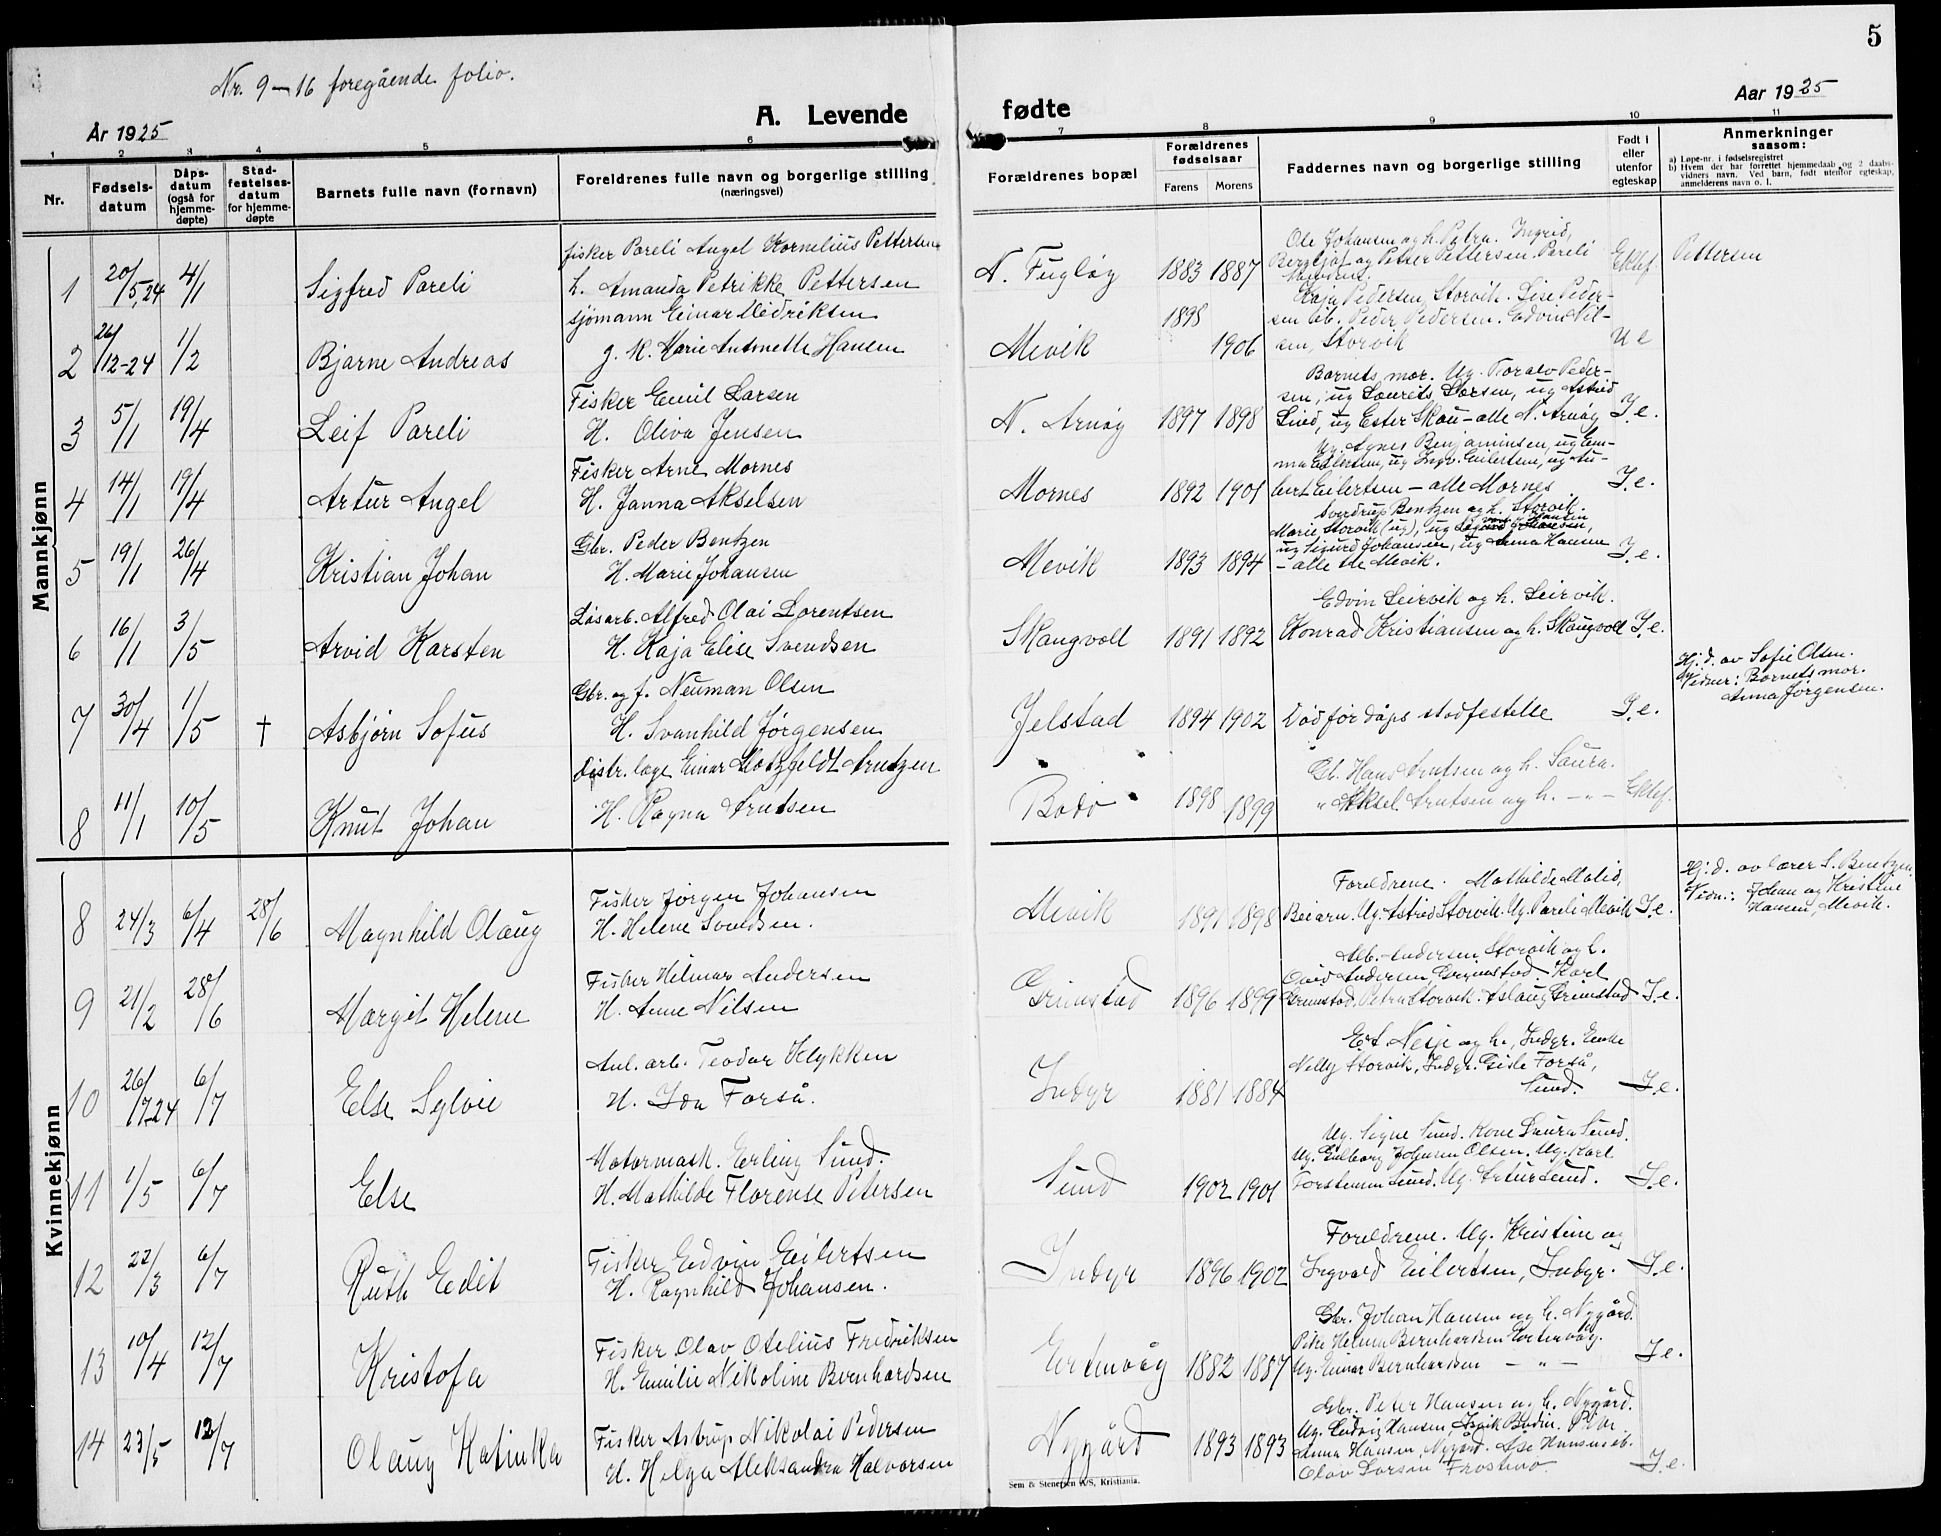 5
Nr. 9-16 foregående folio.
År 1925
A. Levende
fødte
Aar 1925
1 2 3 4 5 6 7 8 9 10 11
Nr.
Fødsels-datum
Dåps-datum (også for hjemme-døpte)
Stad-festelses-datum for hjemme-døpte
Barnets fulle navn (fornavn)
Foreldrenes fulle navn og borgerlige stilling
(næringsvei)
Forældrenes bopæl
Forældrenes fødselsaar
Farens Morens
Faddernes navn og borgerlige stilling
Født i eller utenfor egteskap
Anmerkninger
saasom:
a) Løpe-nr. i fødselsregistret
b) Hvem der har forrettet hjemmedaab og 2 daabs-
vidners navn. Ved barn, født utenfor egteskap,
anmelderens navn o. l.
Mannkjønn
fisker Pareli Angel Kornelius Pettersen
1 20/5,24 4/1 Sigfred Pareli
h. Amanda Petrikke Pettersen
N. Fugløy 1883 1887
Ole Johansen og h. Petra. Ingrid,
Bergljot og Petter Pettersen. Pareli
Ektef. Pettersen
sjømann Einar Hedriksen
2 26/12-24 1/2 Bjarne Andreas
g. M. Marie Antonette Hansen
Mevik 1898 1906
Kaja Pedersen, Storvik. Lise Peder-
sen ib. Peder Pedersen. Edvin Nil-
sen, Storvik
U e
Fisker Emil Larsen
3 5/1 19/4 Leif Pareli
H. Oliva Jensen
N. Arnøy 1897 1898
Barnets mor. Ug. Toralv Peder-
sen, ug Laurits Larsen, ug Astrid
Lind, ug Ester Skau - alle N. Arnøy
I. e.
Fisker Arne Mornes
4 14/1 19/4 Artur Angel
H. Janna Akselsen
Mornes 1892 1901
Ug. Agnes Benjaminsen, ug Em-
ma Eilertsen, ug Ingv. Eilertsen, ug Au-
bert Eilertsen - alle Mornes
I. e.
Gbr. Peder Bentzen
5 19/1 26/4 Kristian Johan
H. Marie Johansen
Mevik 1893 1894
Sverdrup Bentzen og h. Storvik.
Marie Storvik (ug), ug
ug Sigurd Johansen, ug Anna Hansen
- alle Mevik.
I. e.
Løsarb. Alfred Olai Lorentsen
6 16/1 3/5 Arvid Karsten
H. Kaja Elise Svendsen
Skaugvoll 1891 1892
Edvin Leirvik og h. Leirvik.
Konrad Kristiansen og h. Skaugvoll
I. e.
Gbr. og f. Neuman Olsen
7 30/4 1/5 † Asbjørn Sofus
H. Svanhild Jørgensen
Jelstad 1894 1902
Død før dåps stadfestelse
I. e.
Hj. d. av Sofie Olsen.
Vidner: Barnets mor.
Anna Jørgensen.
Distr. læge Einar Motzfeldt Arntzen
8 11/1 10/5 Knut Johan
H. Ragna Arntsen
Bodø 1898 1899
Gb. Hans Arntsen og h. Saura.
" Aksel Arntsen og h. - " -
Ektef.
Kvinnekjønn
Fisker Jørgen Johansen
8 24/3 6/4 28/6 Magnhild Olaug
H. Helene Svendsen.
Mevik 1891 1898
Foreldrene. Mathilde Molid,
Beiarn. Ug. Astrid Storvik. Ug. Pareli Mevik
I. e.
Hj. d. av lærer S. Bentzen.
Vidn.: Johan og Kristine
Hansen, Mevik.
Fisker Hilmar Andersen
9 21/2 28/6 Margit Helene
H. Anne Nilsen
Grimstad 1896 1899
Alb. Andersen Storvik og h.
Ovid Andersen Grimstad. Karl
Grimstad. Petra Storvik. Aslaug Grimstad
I. e.
Anl. arb. Teodor Klykken
10 26/7-24 6/7 Else Sylvie
H. Ida Forså.
Indyr 1881 1884
Ert Nesje og h., Indyr. Enke
Nelly Storvik, Indyr. Gisle Forså,
Sund.
I. e.
Motormask. Erling Sund.
11 1/5 6/7 Else
H. Mathilde Florense Petersen
Sund 1902 1901
Ug. Signe Sund. Kone Laura Sund.
Ug. Gulborg Johanne Olsen. Ug. Karl
Torstensen Sund. Ug. Artur Sund.
I. e.
Fisker Edvin Eilertsen
12 22/3 6/7 Ruth Edit
H. Ragnhild Johansen.
Indyr 1896 1902
Foreldrene. Ug. Kristine og
Ingvald Eilertsen, Indyr.
I. e.
Fisker Olav Otelius Fredriksen
13 10/4 12/7 Kristofa
H. Emilie Nikoline Bernhardsen
Ertenvåg 1882 1887
Gbr. Johan Hansen og h. Nygård.
Pike Helma Bernhardsen Ertenvåg.
Ug. Einar Bernhardsen - " -
I. e.
Fisker Astrup Nikolai Pedersen
14 23/5 12/7 Olaug Katinka
H. Helga Aleksandra Halvorsen
Nygård 1893 1893
Gbr. Peter Hansen og h. Nygård.
Ug. Ludvig Hansen, Bodin. Pike
Anna Hansen Nygård.
Olav Larsen
I. e.
Sem & Stenersen A/S, Kristiania.